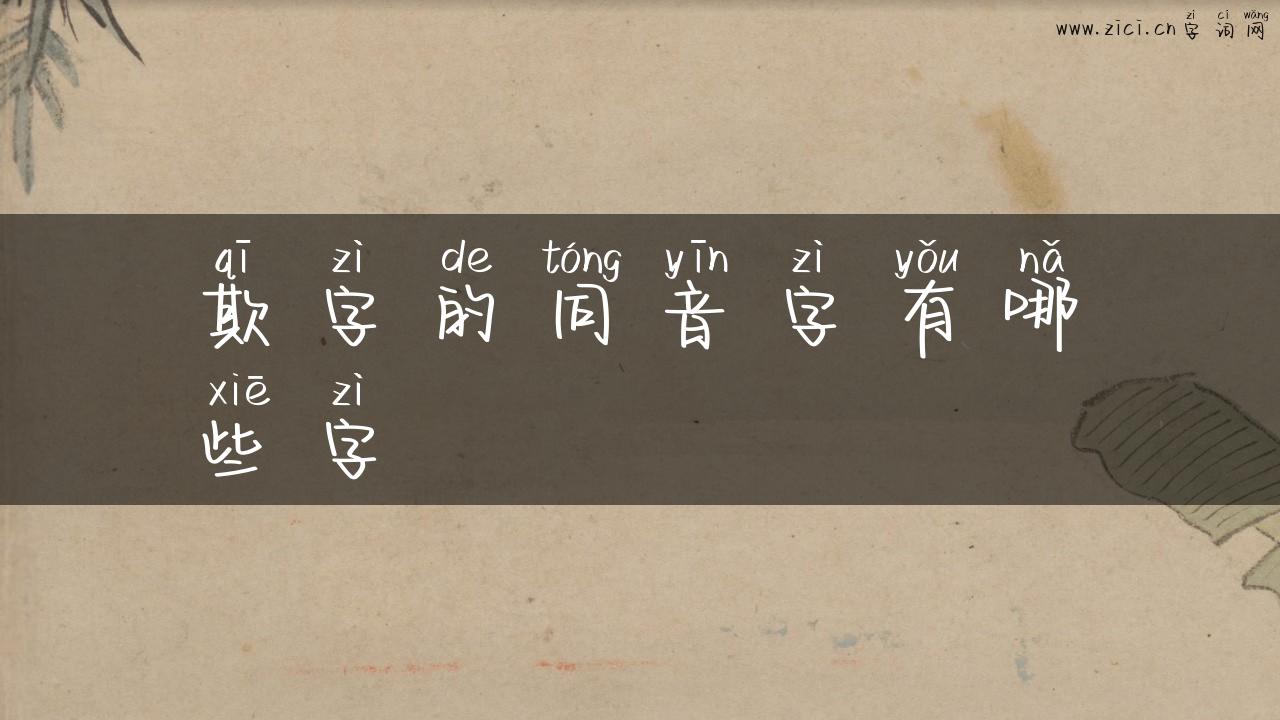 zì cí wǎng
www.zici.cn 字词网
qī zì de tóng yīn zì yǒu nǎ
欺字的同音字有哪
xiē zì
些字